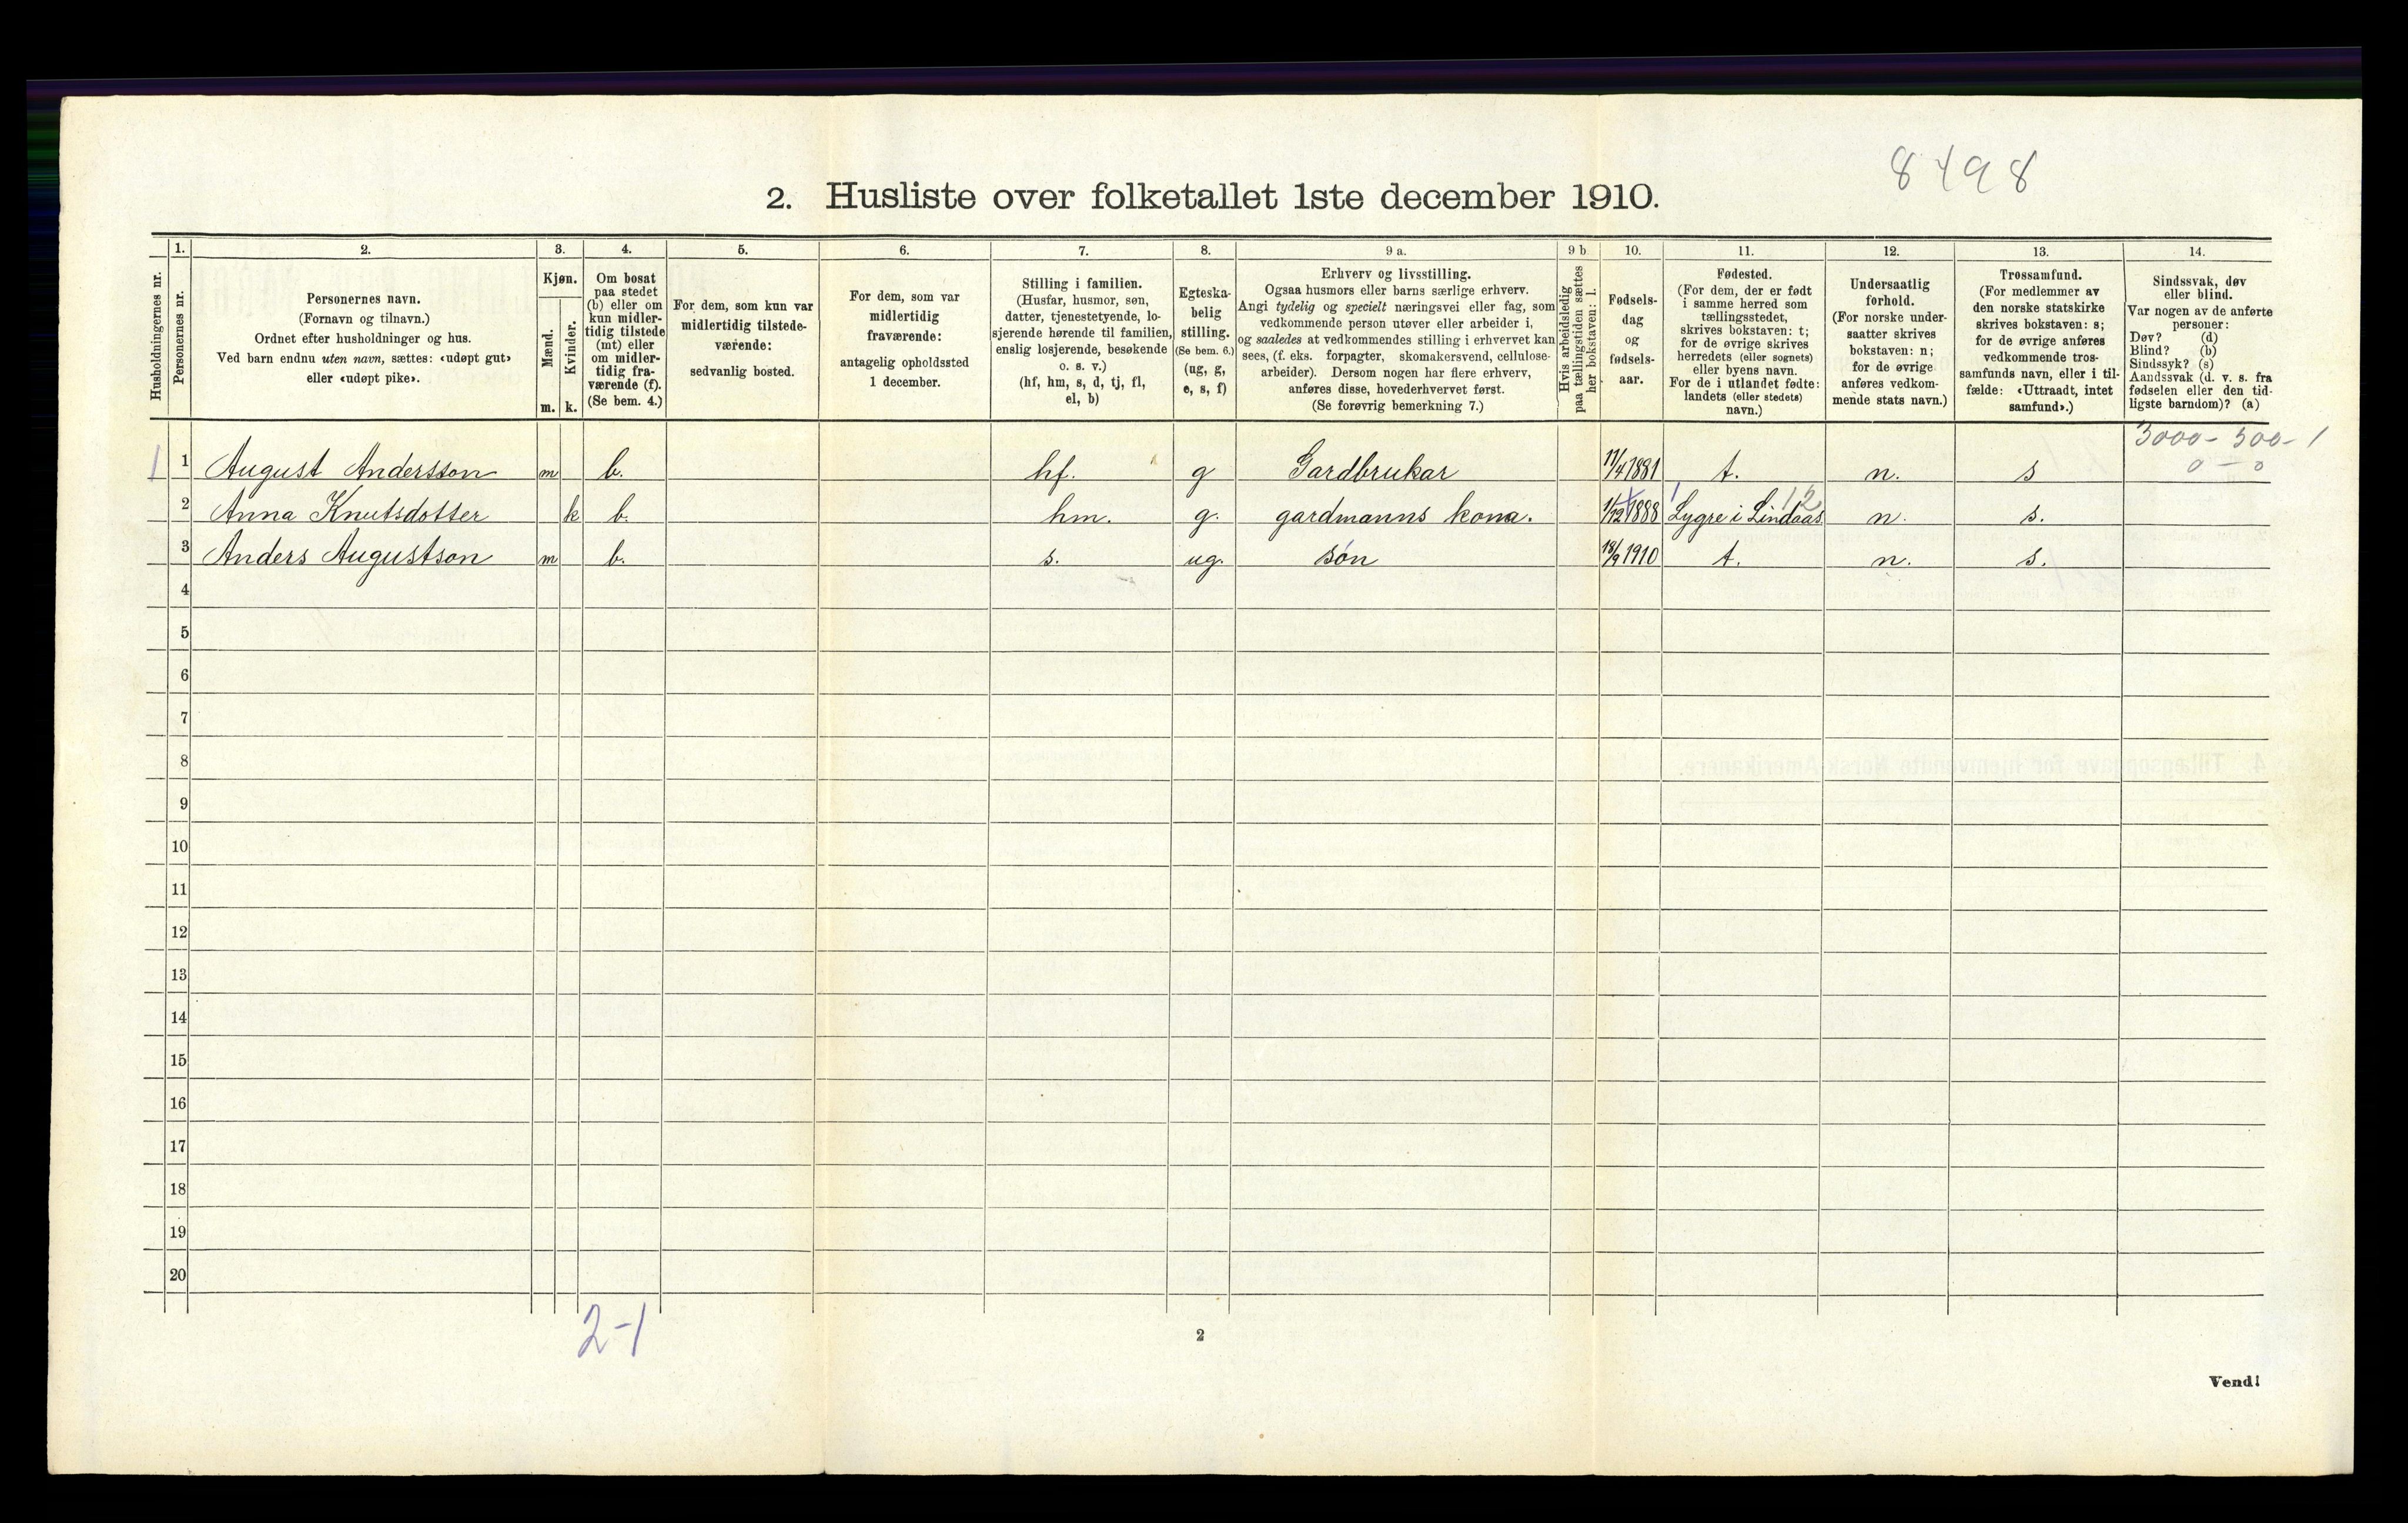 8498
2. Husliste over folketallet 1ste december 1910.
Husholdningernes nr.
1.
Personernes nr.
2.
Personernes navn.
(Fornavn og tilnavn.)
Ordnet efter husholdninger og hus.
Ved barn endnu uten navn, sættes: «udøpt gut»
eller «udøpt pike».
3.
Kjøn.
Mænd.
Kvinder.
m. k.
4.
Om bosat
paa stedet
(b) eller om
kun midler-
tidig tilstede
(mt) eller
om midler-
tidig fra-
værende (f).
(Se bem. 4.)
5.
For dem, som kun var
midlertidig tilstede-
værende:
sedvanlig bosted.
6.
For dem, som var
midlertidig
fraværende:
antagelig opholdssted
1 december.
7.
Stilling i familien.
(Husfar, husmor, søn,
datter, tjenestetyende, lo-
sjerende hørende til familien,
enslig losjerende, besøkende
o. s. v.)
(hf, hm, s, d, tj, fl,
el, b)
8.
Egteska-
belig
stilling.
(Se bem. 6.)
(ug, g,
e, s, f)
9 a.
Erhverv og livsstilling.
Ogsaa husmors eller barns særlige erhverv.
Angi tydelig og specielt næringsvei eller fag, som
vedkommende person utøver eller arbeider i,
og saaledes at vedkommendes stilling i erhvervet kan
sees, (f. eks. forpagter, skomakersvend, cellulose-
arbeider). Dersom nogen har flere erhverv,
anføres disse, hovederhvervet først.
(Se forøvrig bemerkning 7.)
9 b
Hvis arbeidsledig
paa tællingstiden sættes
her bokstaven: l.
10.
Fødsels-
dag
og
fødsels-
aar.
11.
Fødested.
(For dem, der er født
i samme herred som
tællingsstedet,
skrives bokstaven: t;
for de øvrige skrives
herredets (eller sognets)
eller byens navn.
For de i utlandet fødte:
landets (eller stedets)
navn.)
12.
Undersaatlig
forhold.
(For norske under-
saatter skrives
bokstaven: n;
for de øvrige
anføres vedkom-
mende stats navn.)
13.
Trossamfund.
(For medlemmer av
den norske statskirke
skrives bokstaven: s;
for de øvrige anføres
vedkommende tros-
samfunds navn, eller i til-
fælde: «Uttraadt, intet
samfund».)
14.
Sindssvak, døv
eller blind.
Var nogen av de anførte
personer:
Døv? (d)
Blind? (b)
Sindssyk? (s)
Aandssvak (d. v. s. fra
fødselen eller den tid-
ligste barndom)? (a)
3000 - 500 - 1
0 - 0
1 1 August Andersson m b. hf. g Gardbrukar 11/4 1881 t. n. s
1 12
2 Anna Knutsdotter k b. hm. g. gardmanns kona. 1/12 1888 Lygre i Lindaas n. s.
3 Anders Augustson m b. s. ug. són 18/9 1910 t. n. s.
4
5
6
7
8
9
10
11
12
13
14
15
16
17
18
19
20
2-1
2
Vend!